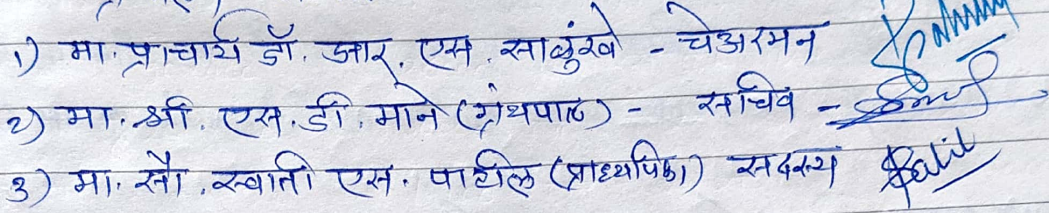 १) मा. प्राचार्य डॉ. आर. एस. साळुंखे - चेअरमन
२) मा. श्री. एस. डी. माने (ग्रंथपाल) - सचिव -
३) मा. सौ. स्वाती एस. पाटील (प्राध्यापिका) सदस्य Patil